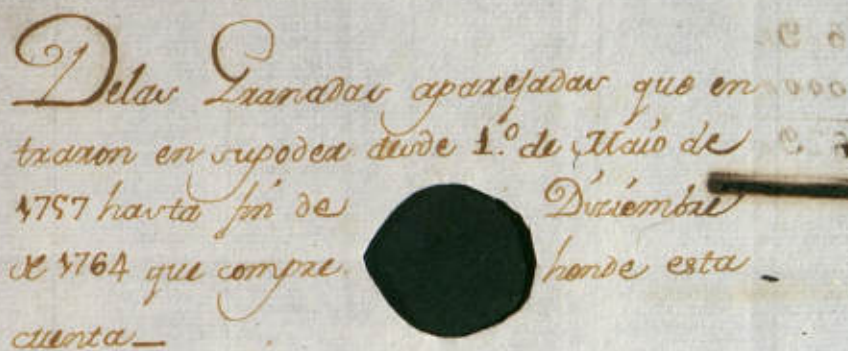 Delas Granadas aparejadas que en
traron en supoder desde 1.º de Maio de
1757 hasta fin de Diziembre
de 1764 que compre honde esta
cuenta_